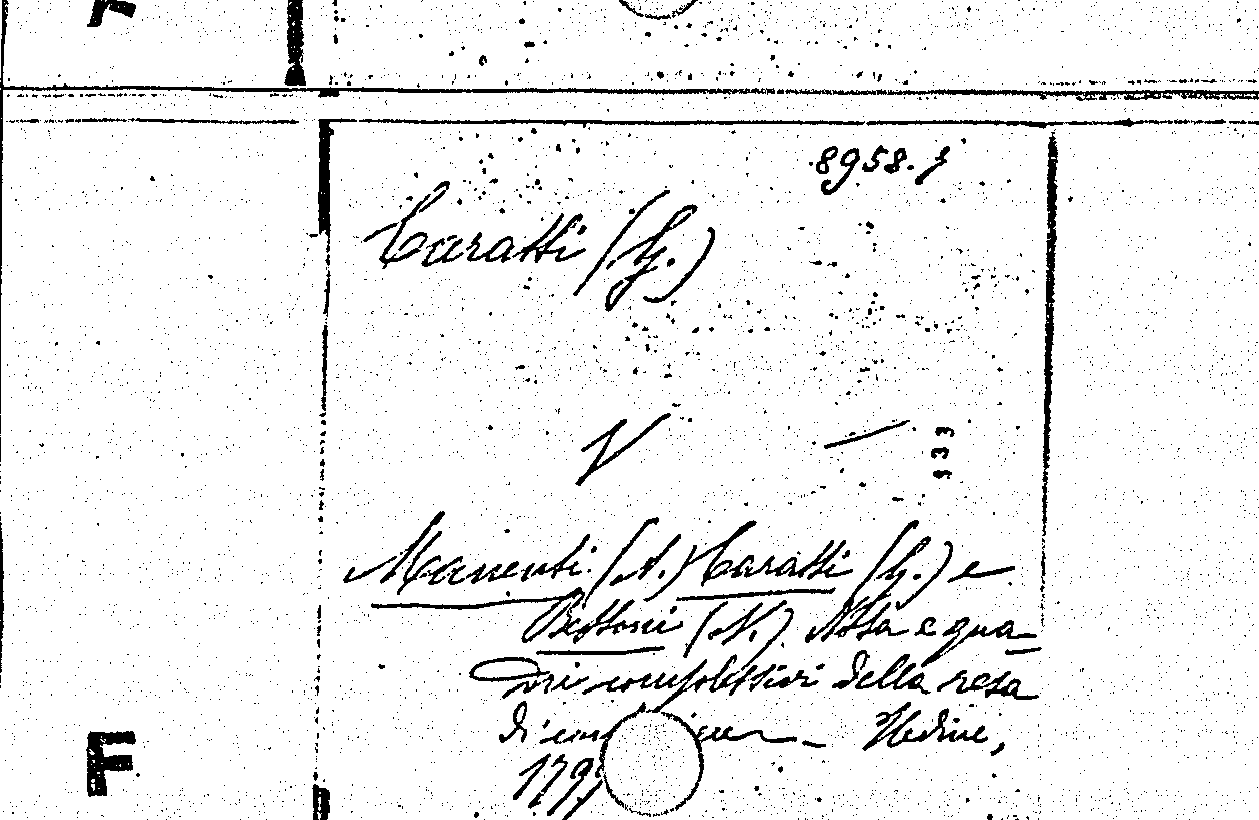 F
8958. 3
Caratti (G.)
V —
133
Manenti (A.) Caratti (G.) e
Bettoni (N.) Nota e qua-
dri complessivi della resa
di
Udine,
179
F